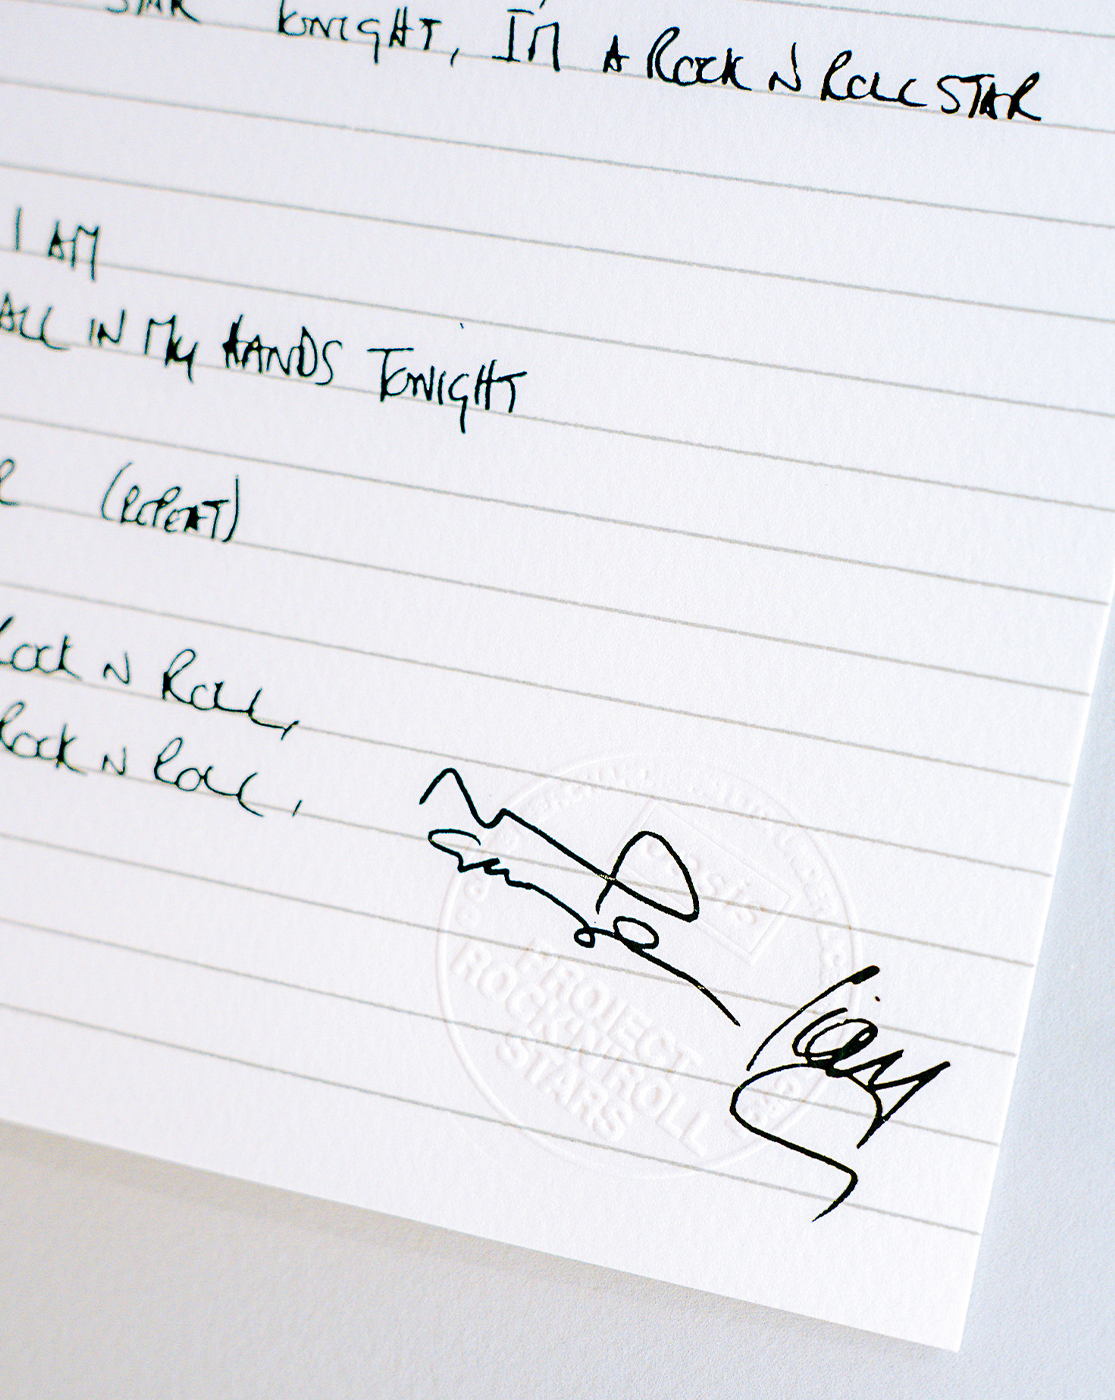 STAR TONIGHT, I'M A ROCK N ROLL STAR
I AM
ALL IN MY HANDS TONIGHT
(REPEAT)
ROCK N ROLL,
ROCK N ROLL,
oasis
PROJECT
ROCK'N'ROLL
STARS